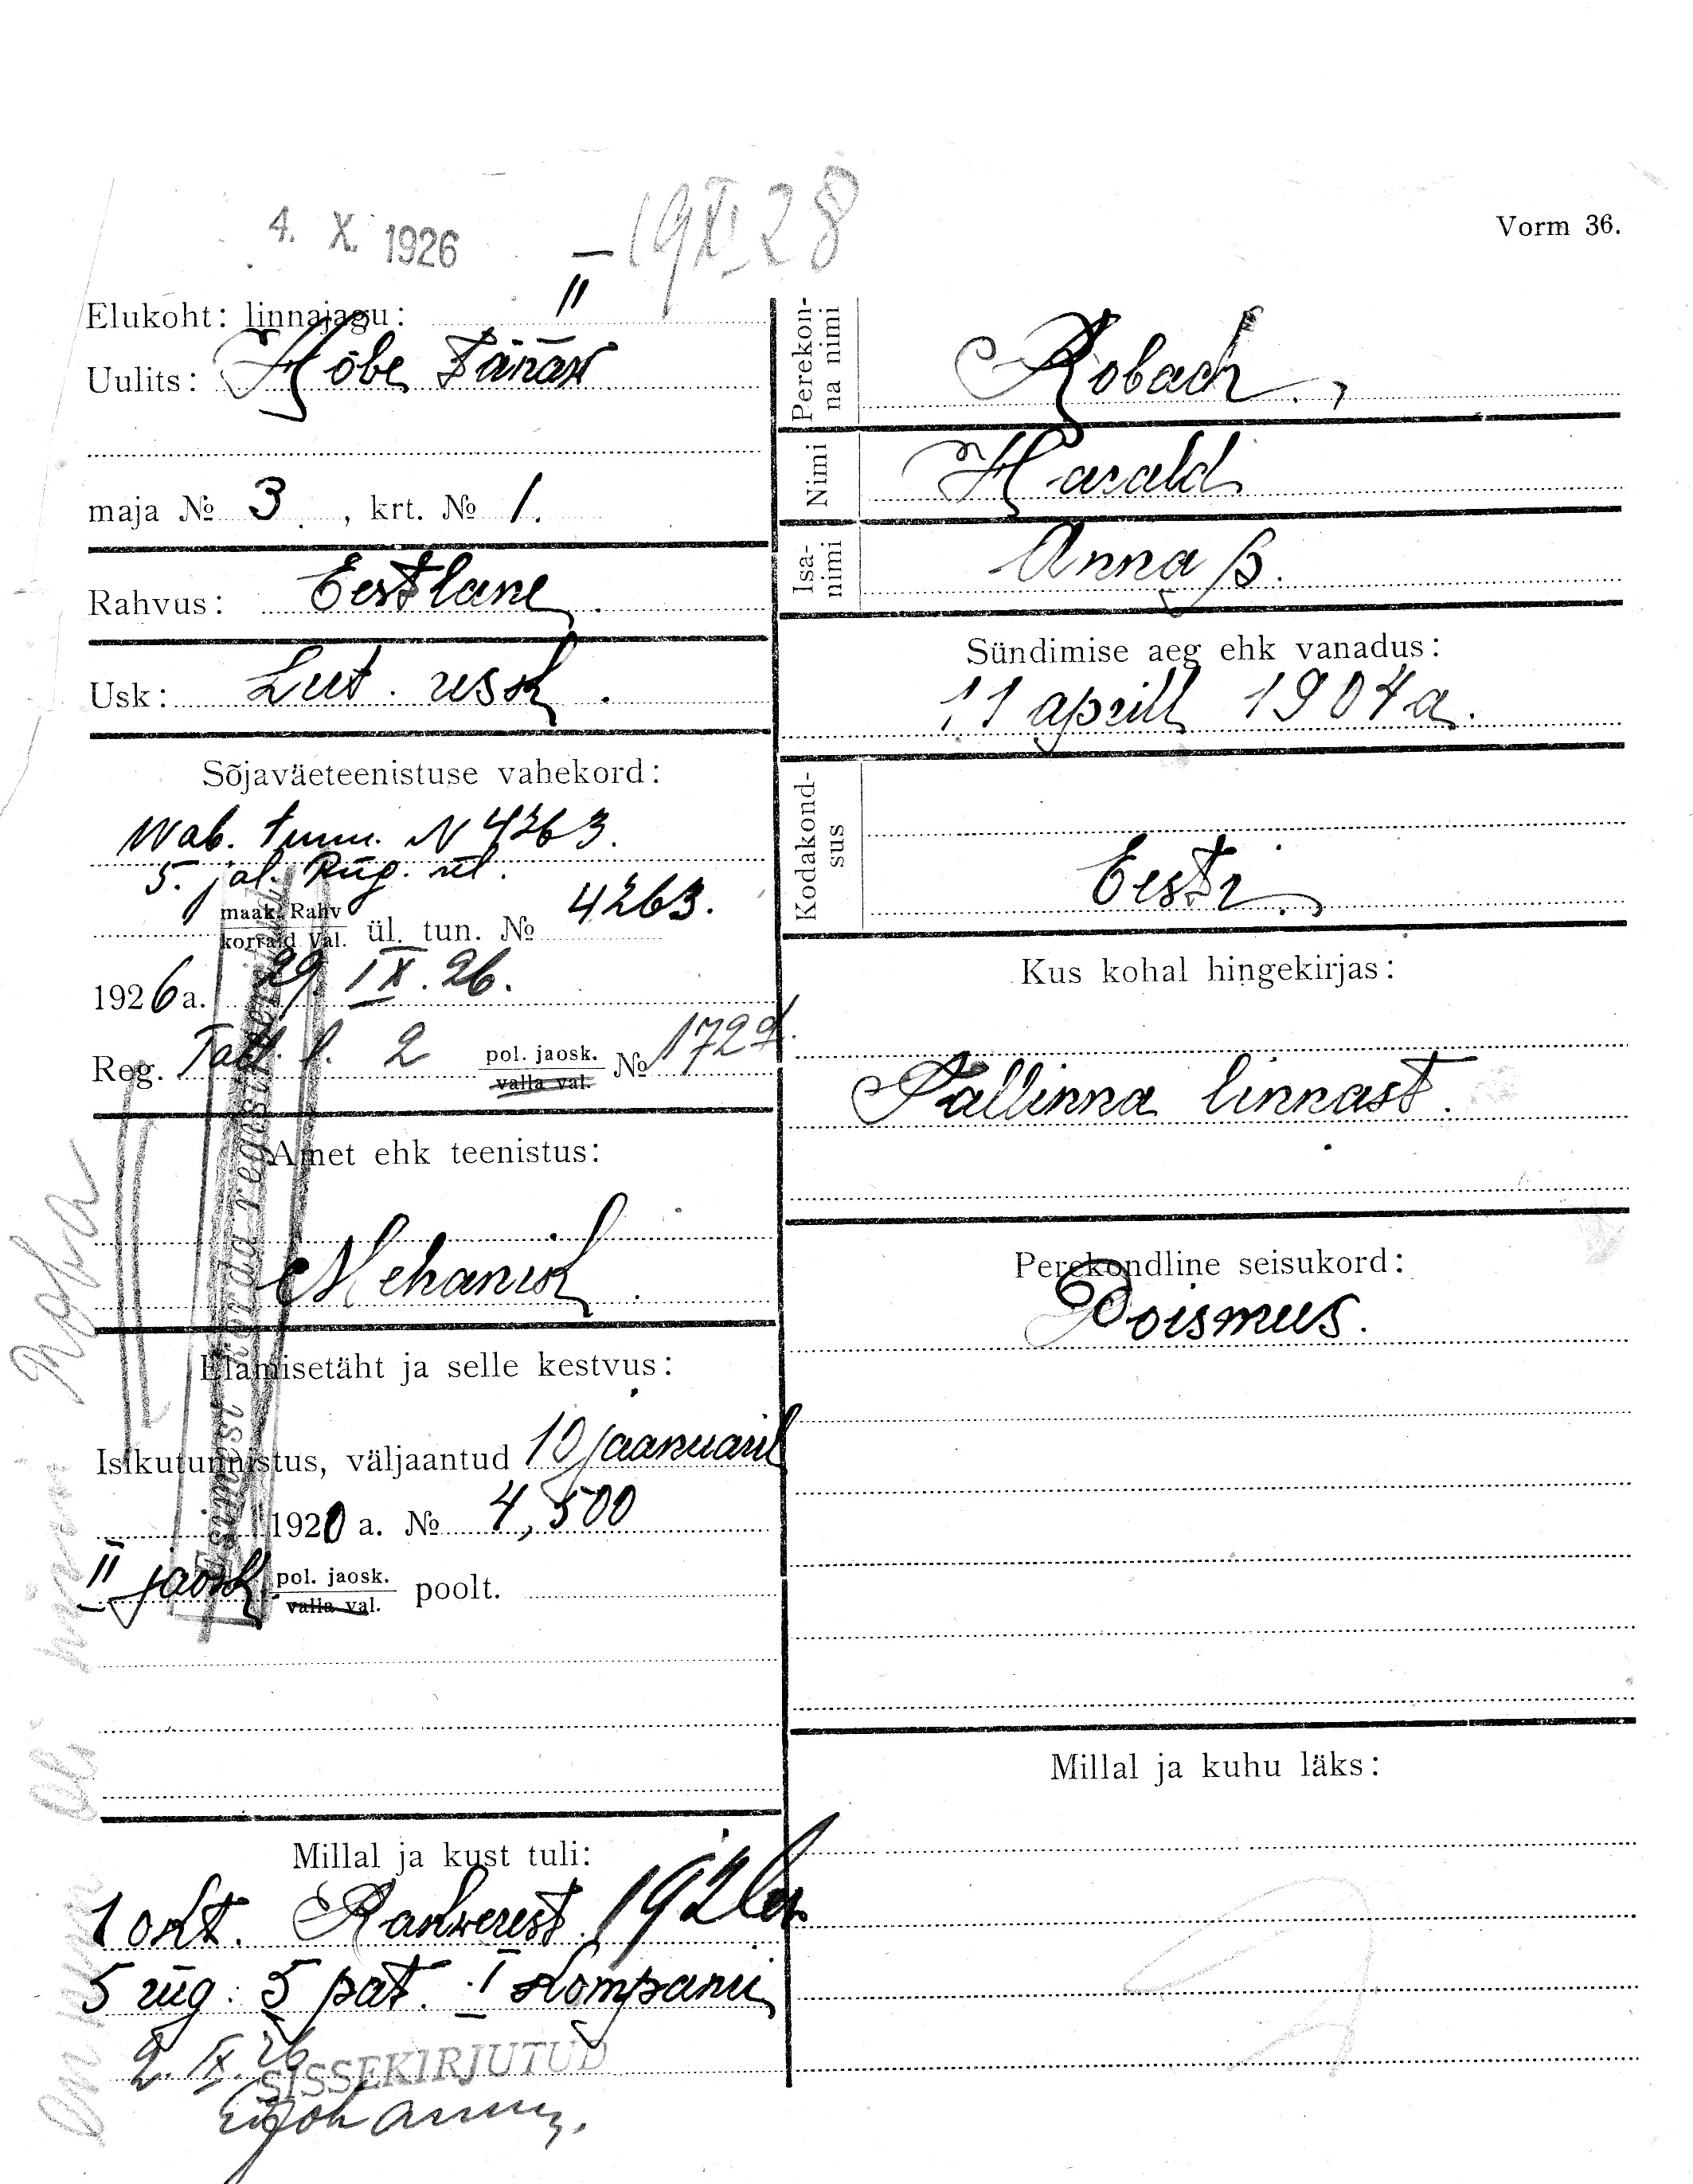 4. X. 1926
19 XI 28
Vorm 36.
Elukoht: linnajagu: II
Uulits: Hõbe Tänaw
maja № 3, krt. № 1.
Rahvus: Eestlane.
Usk: Lut. usk.
Sõjaväeteenistuse vahekord:
Wab. tunn. N 4263.
5. jal. Rüg. ül.
maak. Rahv
korrald Val. ül. tun. № 4263.
1926 a. 29. IX. 26.
Reg. Tall. l. 2 pol. jaosk. valla val. №
Esimest korda registreeritud
Amet ehk teenistus:
Mehanik.
Elamisetäht ja selle kestvus:
Isikutunnistus, väljaantud 10 jaanuaril
1920 a. № 4,500
II jaosk. pol. jaosk. valla val. poolt.
Millal ja kust tuli:
1 okt. Rakwerest. 1926 a.
5 rüg. 5 pat. I kompanii
2. IX. 26
SISSEKIRJUTUD
Perekonna nimi Robach,
Nimi Harald
Isanimi Anna p.
Sündimise aeg ehk vanadus:
11 aprill 1904 a.
Kodakondsus Eesti.
Kus kohal hingekirjas:
Tallinna linnast.
Perekondline seisukord:
Poismees.
Millal ja kuhu läks: